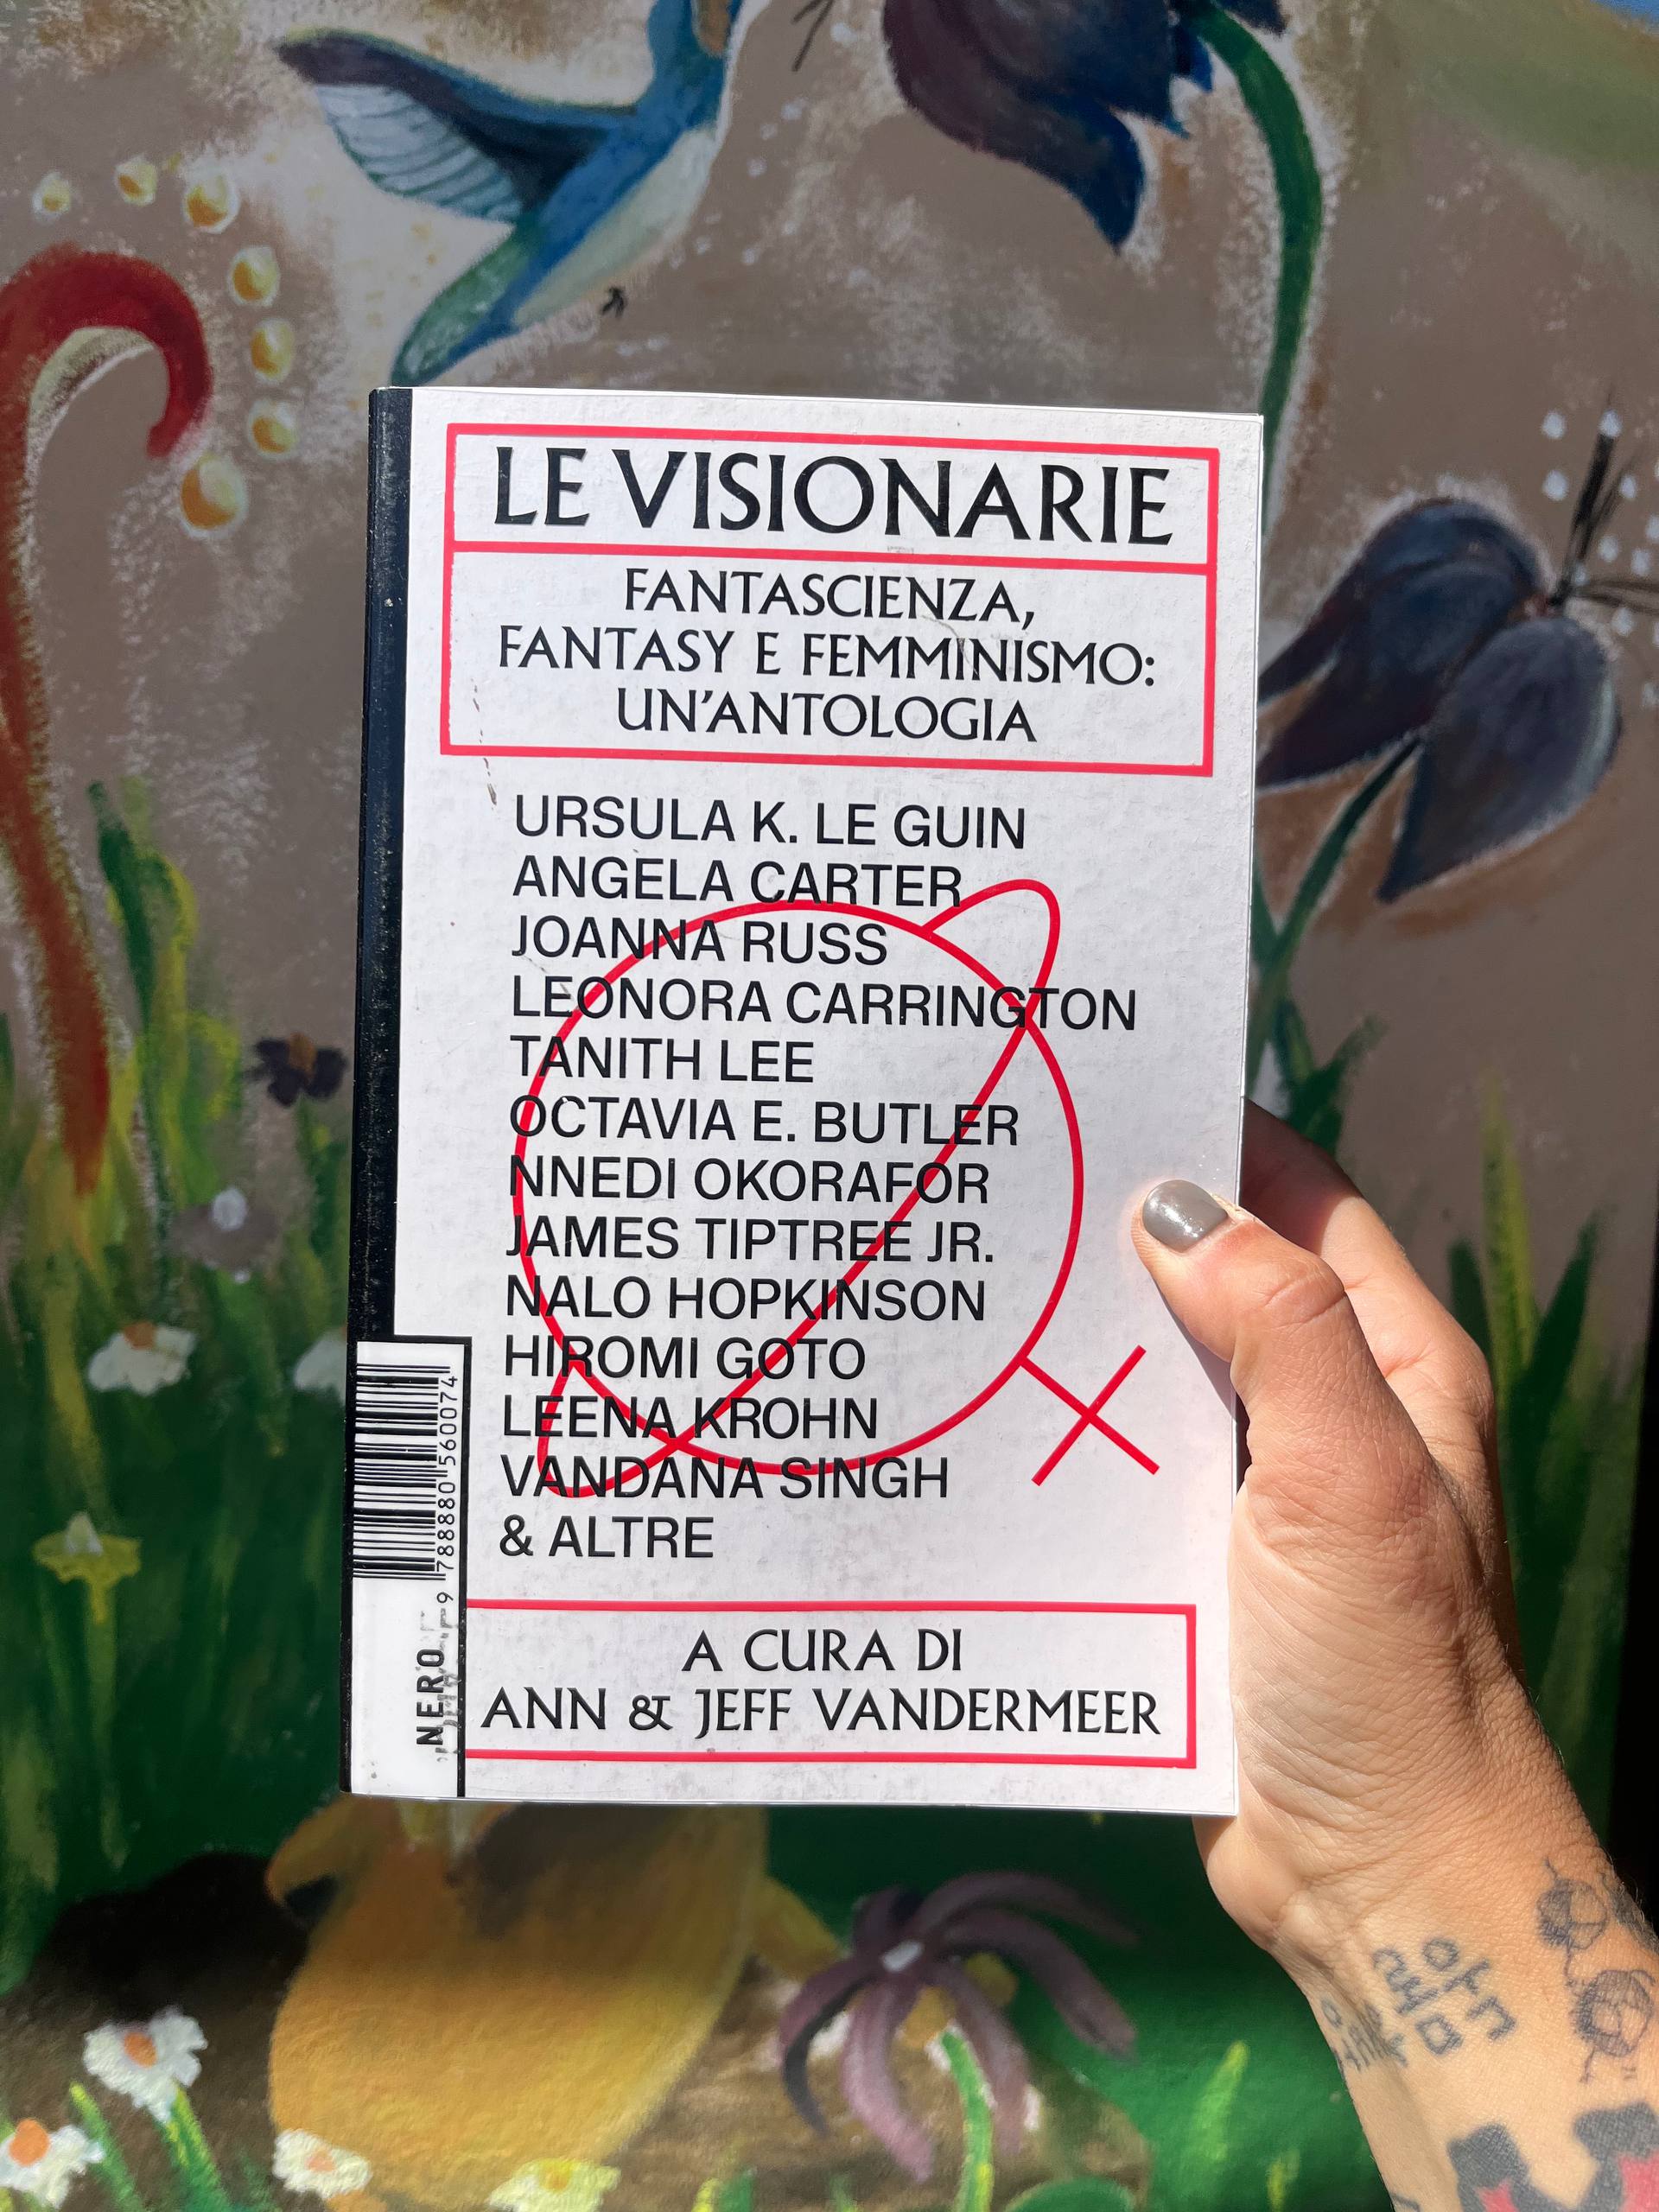 LE VISIONARIE
FANTASCIENZA,
FANTASY E FEMMINISMO:
UN'ANTOLOGIA
URSULA K. LE GUIN
ANGELA CARTER
JOANNA RUSS
LEONORA CARRINGTON
TANITH LEE
OCTAVIA E. BUTLER
NNEDI OKORAFOR
JAMES TIPTREE JR.
NALO HOPKINSON
HIROMI GOTO
LEENA KROHN
VANDANA SINGH
& ALTRE
A CURA DI
ANN & JEFF VANDERMEER
NERO
9 788880 560074